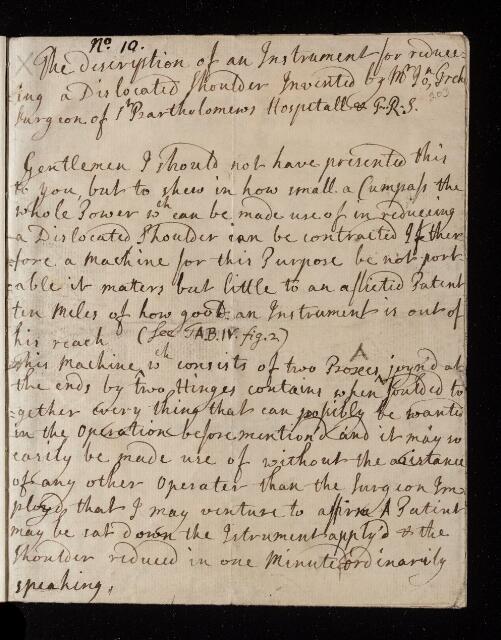 No. 10.
The discription of an Instrument for reduce-
-ing a Dislocated Shoulder Invented by Mr. Jn.
Surgeon of St. Bartholomews Hospitall & F.R.S.
203
Gentlemen I should not have presented this
to you, but to shew in how small a Cumpass the
whole Power wch can be made use of in reduceing
a Dislocated Shoulder can be contracted If ther
fore a machine for this Purpose be not port
able it maters but little to an aflicted Patent
ten Miles of how good an Instrument is out of
his reach (See TAB.IV. fig. 2)
This Machine wch consists of two Boxes joyn'd at
the ends by two Hinges contains when foulded to
-gether every thing that can possibly be wanted
in the Operation before mention'd and it may so
easily be made use of without the asistance
of any other Operater than the Surgeon Im
ployd that I may venture to affirm A Patent
may be sat down the Istrument apply'd & the
Shoulder reduced in one Minute ordinarily
speaking.